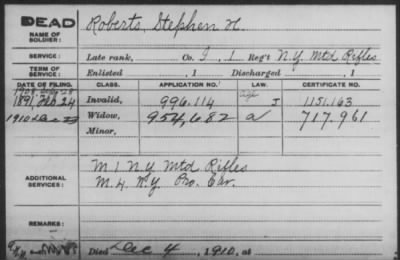 DEAD
NAME OF SOLDIER:
Roberts, Stephen H.
SERVICE:
Late rank, Co. I, 1 Reg't N.Y. Mtd Rifles
TERM OF SERVICE:
Enlisted , 1 Discharged , 1
DATE OF FILING. CLASS. APPLICATION NO. LAW. CERTIFICATE NO.
1891, Feb 24 Invalid, 996.114 I 1151.163
1910 Dec Widow, 954,682 a 717.961
Minor,
ADDITIONAL SERVICES:
M 1 N.Y. Mtd Rifles
M. 4. N.Y. Pro. Cav.
REMARKS:
Died Dec 4, 1910, at